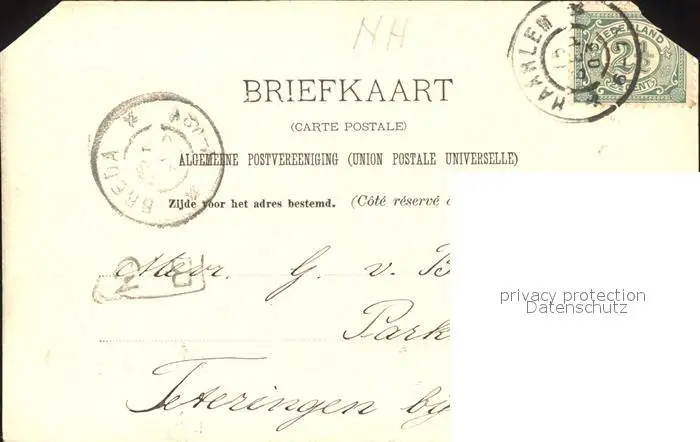 NH
HAARLEM
NEDERLAND
2½
CENT
BRIEFKAART
(CARTE POSTALE)
ALGEMEENE POSTVEREENIGING (UNION POSTALE UNIVERSELLE)
BREDA
Zijde voor het adres bestemd. (Côté réservé
G. v. B
Park
Teteringen bij
privacy protection
Datenschutz